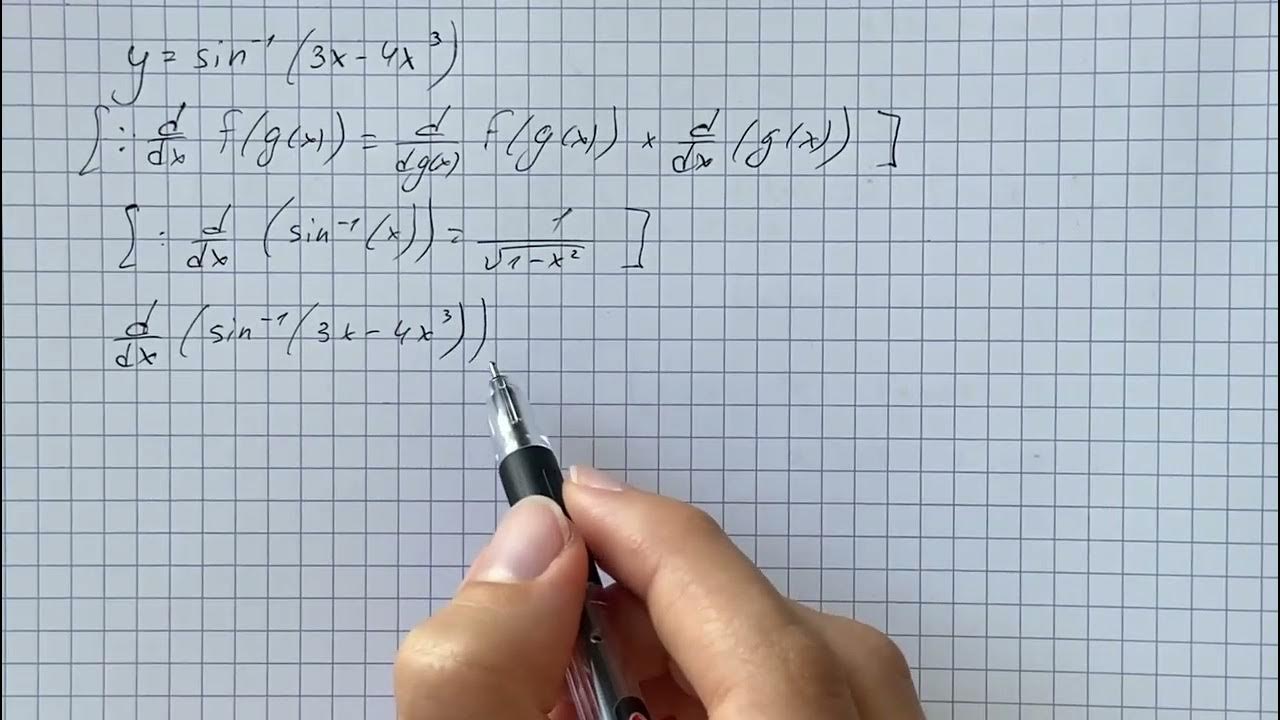 y = sin⁻¹ (3x - 4x³)
[∵ d/dx f(g(x)) = d/dg(x) f(g(x)) × d/dx (g(x)) ]
[: d/dx (sin⁻¹(x)) = 1/√1-x² ]
d/dx (sin⁻¹(3x - 4x³))